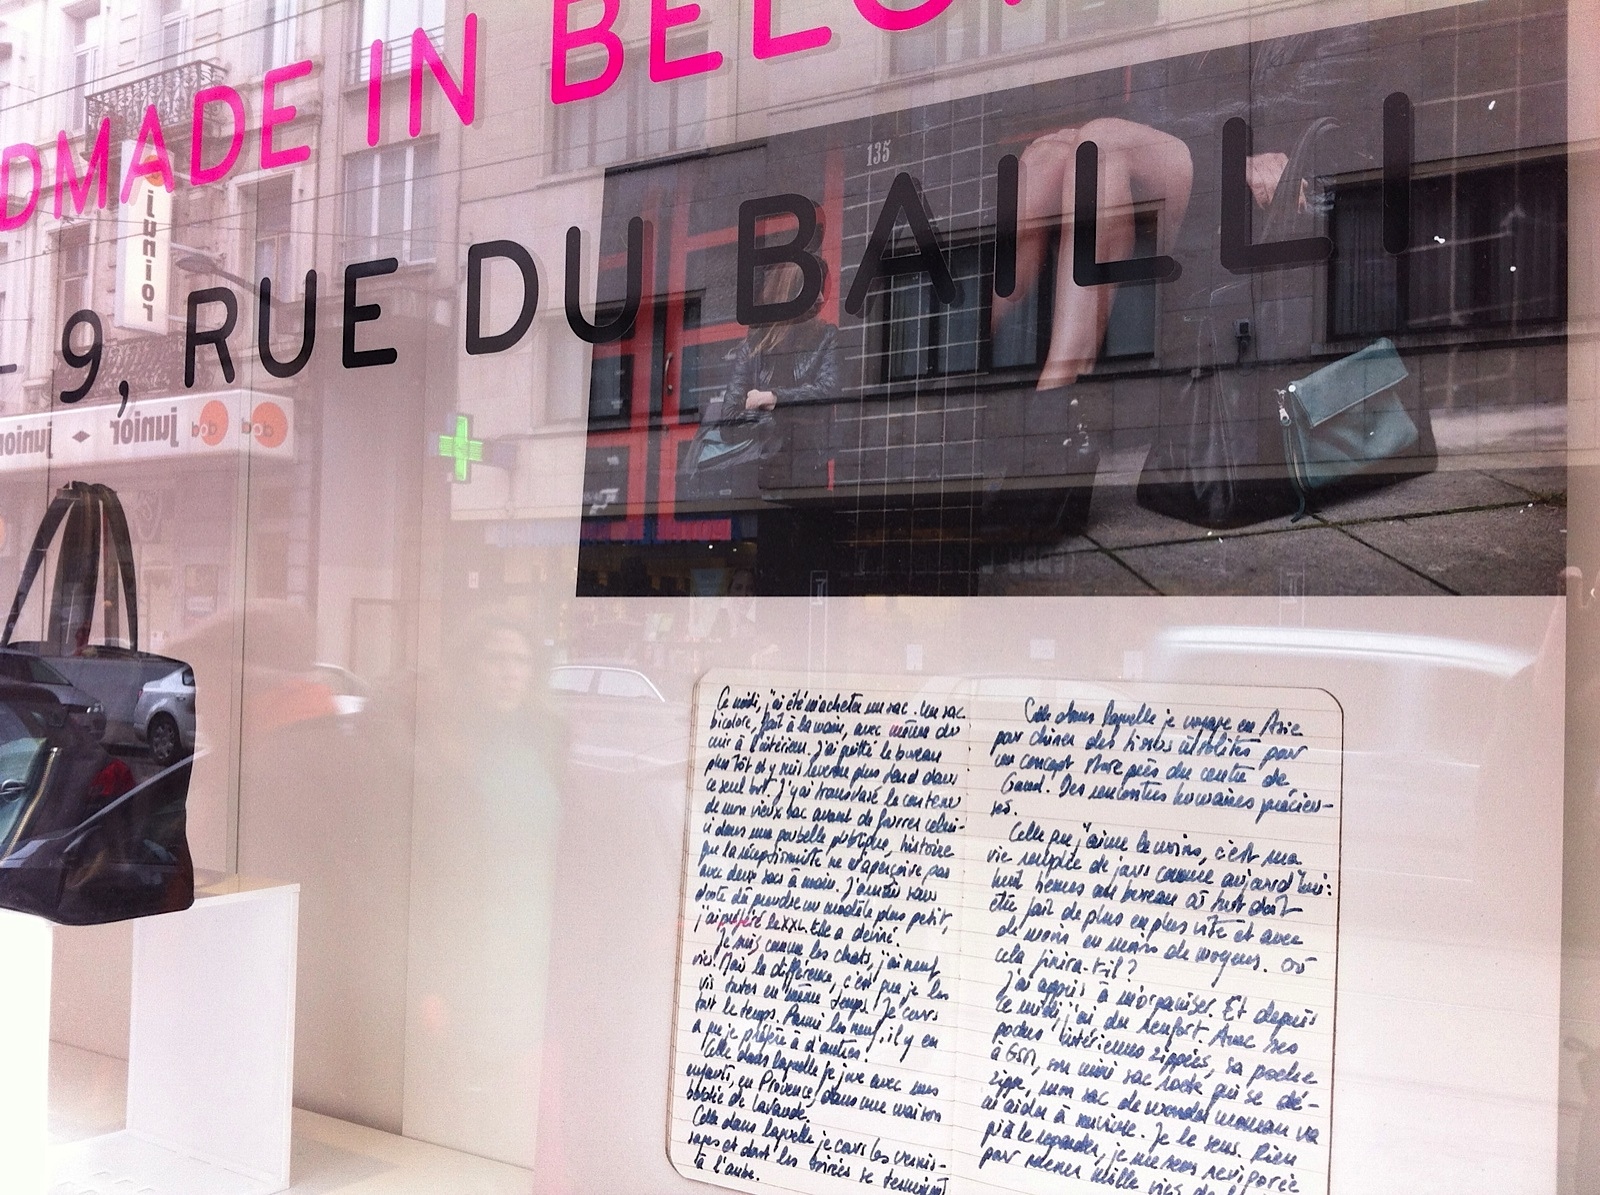 DMADE IN BELG
- 9, RUE DU BAILLI
135
junior
junior junior
Ce midi, j'ai été m'acheter un sac. Un sac
bicolore, fait à la main, avec même du
cuir à l'intérieur. J'ai quitté le bureau
plus tôt et y suis revenue plus tard dans
ce seul but. J'y ai transvasé le contenu
de mon vieux sac avant de fourrer celui-
ci dans une poubelle publique, histoire
que la réceptionniste ne m'aperçoive pas
avec deux sacs à main. J'aurais sans
doute dû prendre un modèle plus petit,
j'ai préféré le XXL. Elle a deviné.
Je suis comme les chats, j'ai neuf
vies. Mais la différence, c'est que je les
vis toutes en même temps. Je cours
tout le temps. Parmi les neuf, il y en
a que je préfère à d'autres!
Celle dans laquelle je joue avec mes
enfants, en Provence, dans une maison
bordée de lavande.
Celle dans laquelle je cours les vernis-
sages et dont les soirées se terminent
à l'aube.
Celle dans laquelle je voyage en Asie
pour chiner des tissus insolites pour
un concept store près du centre de
Gand. Des rencontres humaines précieu-
ses.
Celle que j'aime le moins, c'est ma
vie remplie de jours comme aujourd'hui:
huit heures au bureau où tout doit
être fait de plus en plus vite et avec
de moins en moins de moyens. Où
cela finira-t-il?
J'ai appris à m'organiser. Et depuis
ce midi, j'ai du renfort. Avec ses
poches intérieures zippées, sa poche
à GSM, son mini sac caché qui se dé-
zippe, mon sac de wonder woman va
m'aider à survivre. Je le sens. Rien
qu'à le regarder, je me sens revigorée
pour mener mille vies de